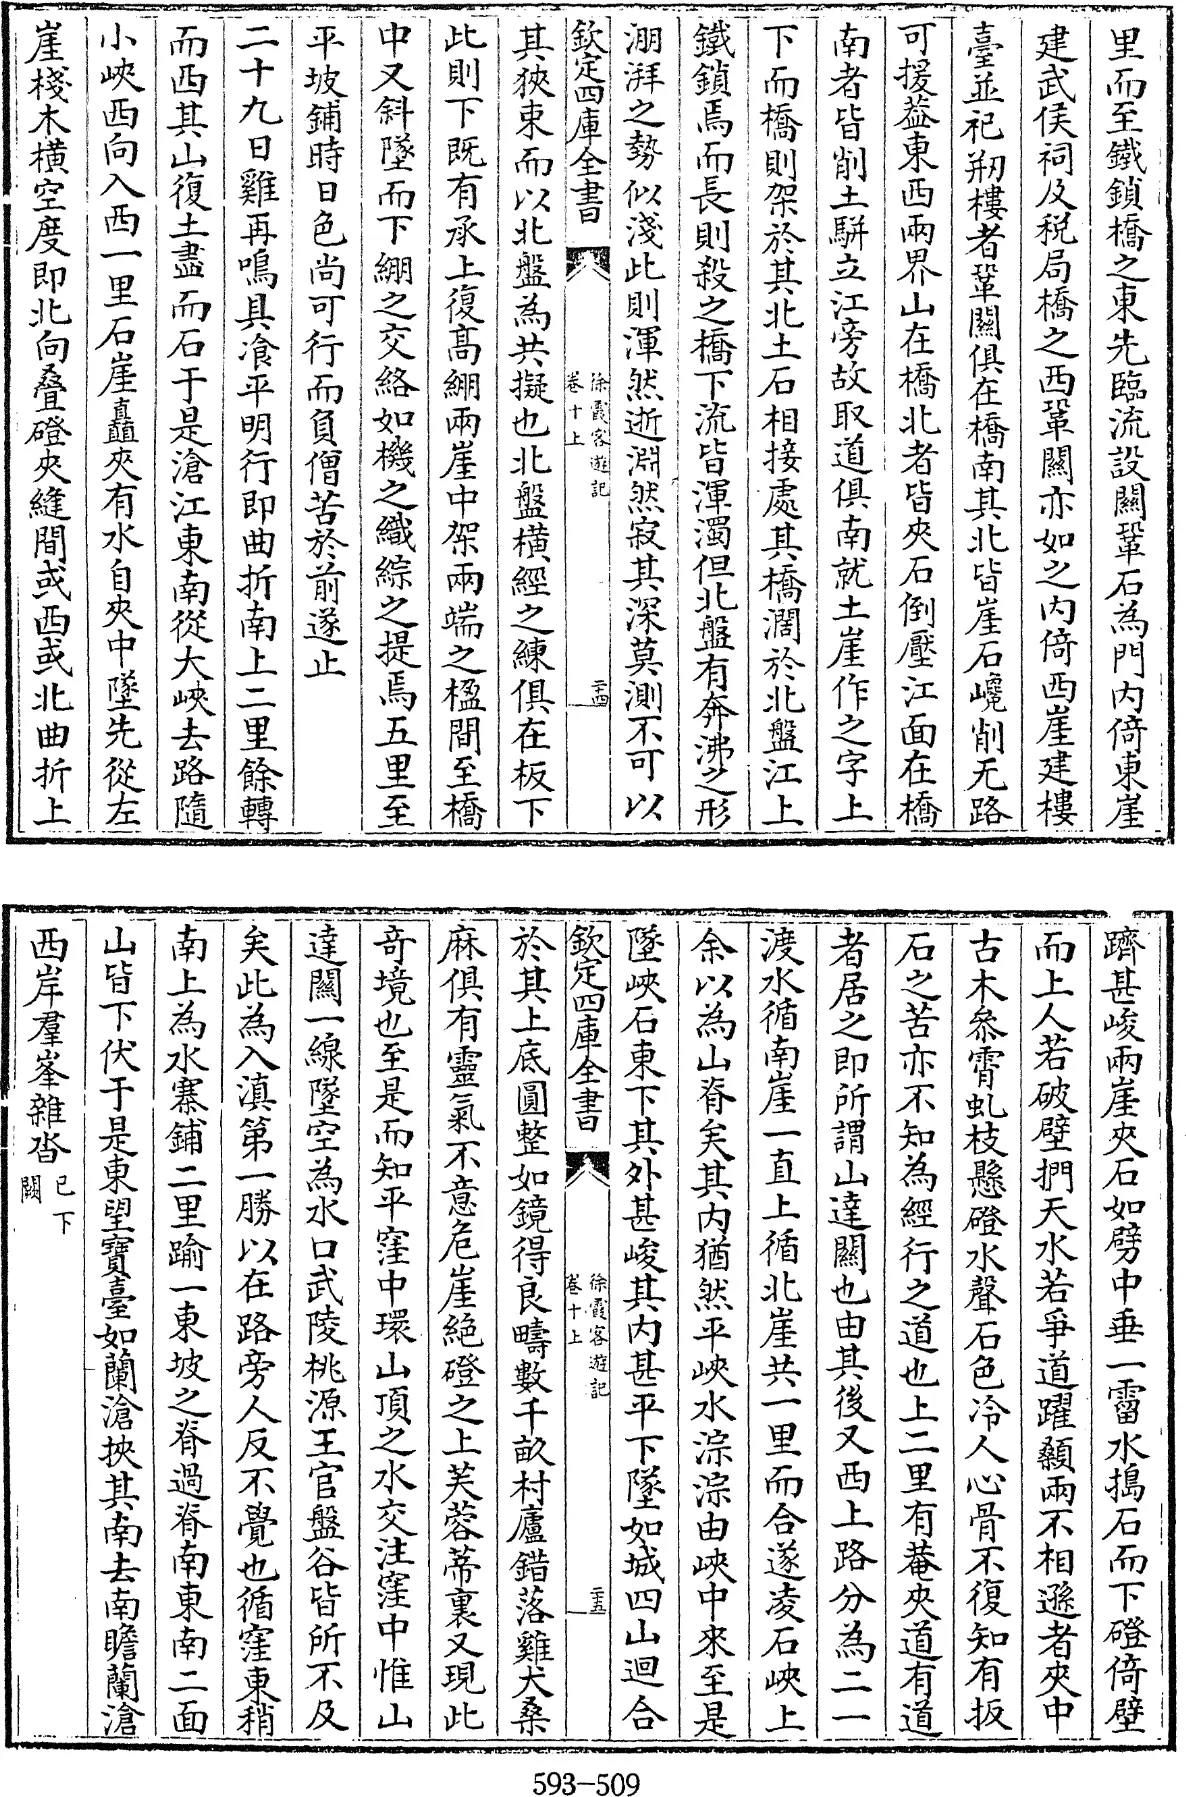 里而至鐵鎖橋之東先臨流設關鞏石為門内倚東崖
建武侯祠及税局橋之西鞏關亦如之内倚西崖建樓
臺並祀剏樓者鞏關俱在橋南其北皆崖石巉削无路
可援葢東西兩界山在橋北者皆夾石倒壓江面在橋
南者皆削土駢立江旁故取道俱南就土崖作之字上
下而橋則架於其北土石相接處其橋濶於北盤江上
鐵鎖焉而長則殺之橋下流皆渾濁但北盤有奔沸之形
淜湃之勢似淺此則渾然逝淵然寂其深莫測不可以
欽定四庫全書
徐霞客遊記
卷十上
二十四
其狹束而以北盤為共擬也北盤橫經之練俱在板下
此則下既有承上復髙綳兩崖中架兩端之楹間至橋
中又斜墜而下綳之交絡如機之織綜之提焉五里至
平坡鋪時日色尚可行而負僧苦於前遂止
二十九日雞再鳴具飡平明行即曲折南上二里餘轉
而西其山復土盡而石于是滄江東南從大峽去路隨
小峽西向入西一里石崖矗夾有水自夾中墜先從左
崖棧木橫空度即北向疊磴夾縫間或西或北曲折上
躋甚峻兩崖夾石如劈中垂一霤水搗石而下磴倚壁
而上人若破壁捫天水若爭道躍顙兩不相遜者夾中
古木叅霄虬枝懸磴水聲石色冷人心骨不復知有扳
石之苦亦不知為經行之道也上二里有菴夾道有道
者居之即所謂山達關也由其後又西上路分為二一
渡水循南崖一直上循北崖共一里而合遂凌石峽上
余以為山脊矣其内猶然平峽水淙淙由峽中來至是
墜峽石東下其外甚峻其内甚平下墜如城四山迴合
欽定四庫全書
徐霞客遊記
卷十上
二十五
於其上底圓整如鏡得良疇數千畝村廬錯落雞犬桑
麻俱有靈氣不意危崖絶磴之上芙蓉蒂裏又現此
竒境也至是而知平窪中環山頂之水交注窪中惟山
達關一線墜空為水口武陵桃源王官盤谷皆所不及
矣此為入滇第一勝以在路旁人反不覺也循窪東稍
南上為水寨鋪二里踰一東坡之脊過脊南東南二面
山皆下伏于是東望寳臺如蘭滄挾其南去南瞻蘭滄
西岸羣峯雜沓已下闕
593-509